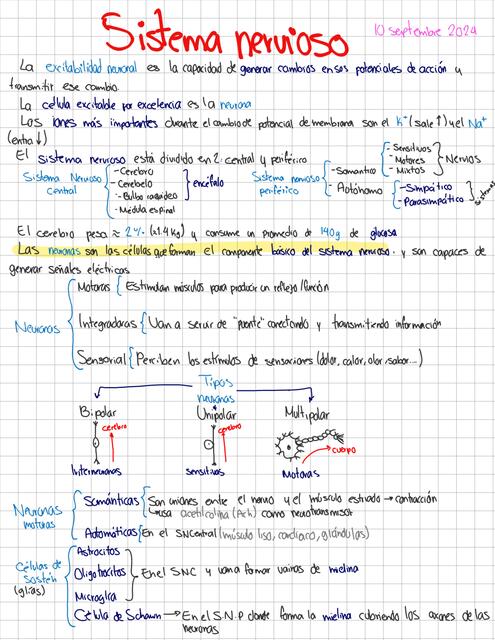 Sistema nervioso
10 septembre 2024
La excitabilidad neuronal es la capacidad de generar cambios en sus potenciales de acción y
transmitir ese cambio.
La célula excitable por excelencia es la neurona
Los iones más importantes durante el cambio de potencial de membrana son el K+ (sale ↑) y el Na+
(entra ↓)
El sistema nervioso está dividido en 2: central y periférico
Sistema Nervioso central
- Cerebro
- Cerebelo
- Bulbo raquídeo
- Médula espinal
encéfalo
Sistema nervioso periférico
- Somántico
- Sensitivos
- Motores
- Mixtos
Nervios
- Autónomo
- Simpático
- Parasimpático
Sistemas
El cerebro pesa ≈ 2% (≈1.4 kg) y consume un promedio de 140g de glucosa
Las neuronas son las células que forman el componente básico del sistema nervioso. y son capaces de
generar señales eléctricas
Neuronas
Motoras { Estimulan músculos para producir un reflejo/función
Integradoras { Van a servir de "puente" conectando y transmitiendo información
Sensorial { Perciben los estímulos de sensaciones (dolor, calor, olor, sabor...)
Tipos
neuronas
Bipolar
cerebro
Interneuronas
Unipolar
cerebro
sensitivas
Multipolar
cuerpo
Motoras
Neuronas
motoras
Sománticas { Son uniones entre el nervio y el músculo estriado → contracción
↳ usa acetilcolina (Ach) como neurotransmisor
Automáticas { En el SNCentral (músculo liso, cardiaco, glándulas)
Células de
Sostén
(glías)
Astrocitos
Oligotrocitos
Microglía
En el SNC y van a formar vainas de mielina
Célula de Schawn → En el S.N.P donde forma la mielina cubriendo los axones de las
neuronas